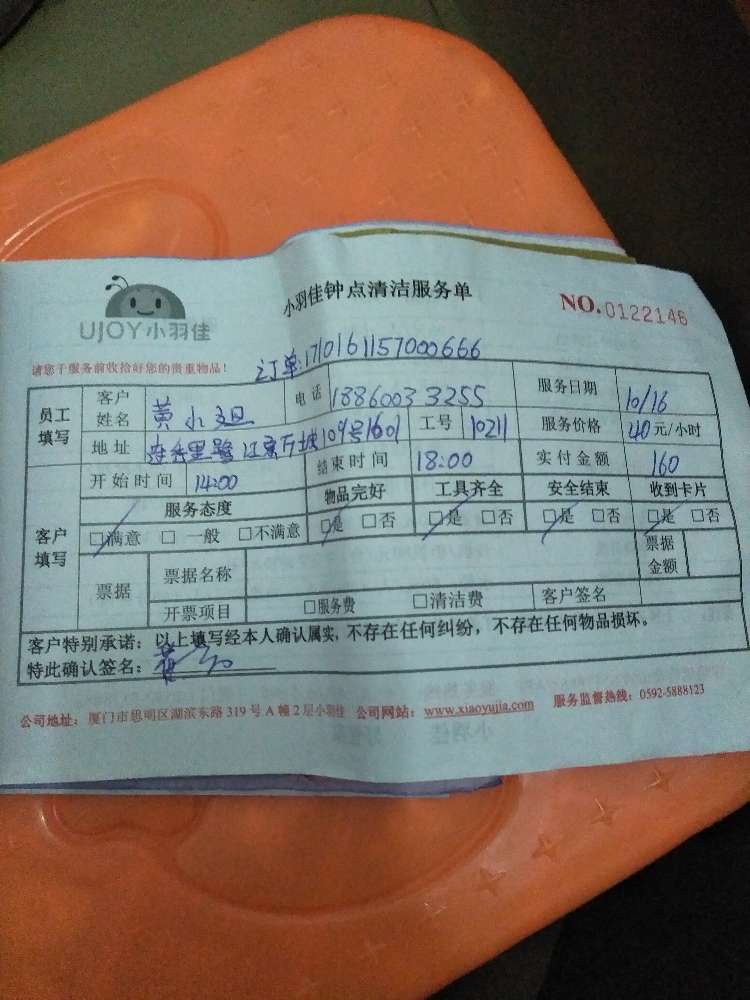 小羽佳钟点清洁服务单
NO.0122146
UJOY小羽佳
请您于服务前收拾好您的贵重物品!
订单:171016115700066​6
员工填写 客户姓名 黄小姐 电话 18860033255 服务日期 10/16
地址 109号1601 工号 10211 服务价格 40元/小时
开始时间 14:00 结束时间 18:00 实付金额 160
客户填写 服务态度 物品完好 工具齐全 安全结束 收到卡片
□满意 □一般 □不满意 □是 □否 □是 □否 □是 □否 □是 □否
票据 票据名称 票据金额
开票项目 □服务费 □清洁费 客户签名
客户特别承诺:以上填写经本人确认属实,不存在任何纠纷,不存在任何物品损坏。
特此确认签名:
公司地址:厦门市思明区湖滨东路319号A幢2层小羽佳 公司网站:www.xiaoyujia.com 服务监督热线:0592-5888123